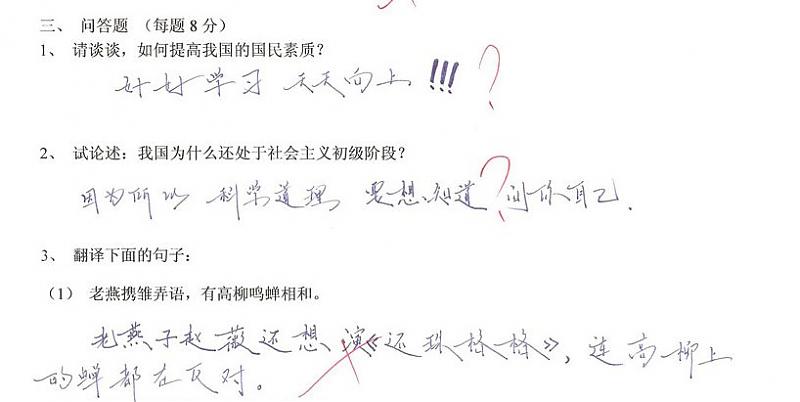 三、 问答题 （每题 8 分）
1、 请谈谈，如何提高我国的国民素质？
好好学习 天天向上 !!! ?
2、 试论述：我国为什么还处于社会主义初级阶段？
因为所以 科学道理 要想知道 ? 问你自己.
3、 翻译下面的句子：
（1） 老燕携雏弄语，有高柳鸣蝉相和。
老燕子赵薇还想演《还珠格格》，连高柳上
的蝉都在反对。